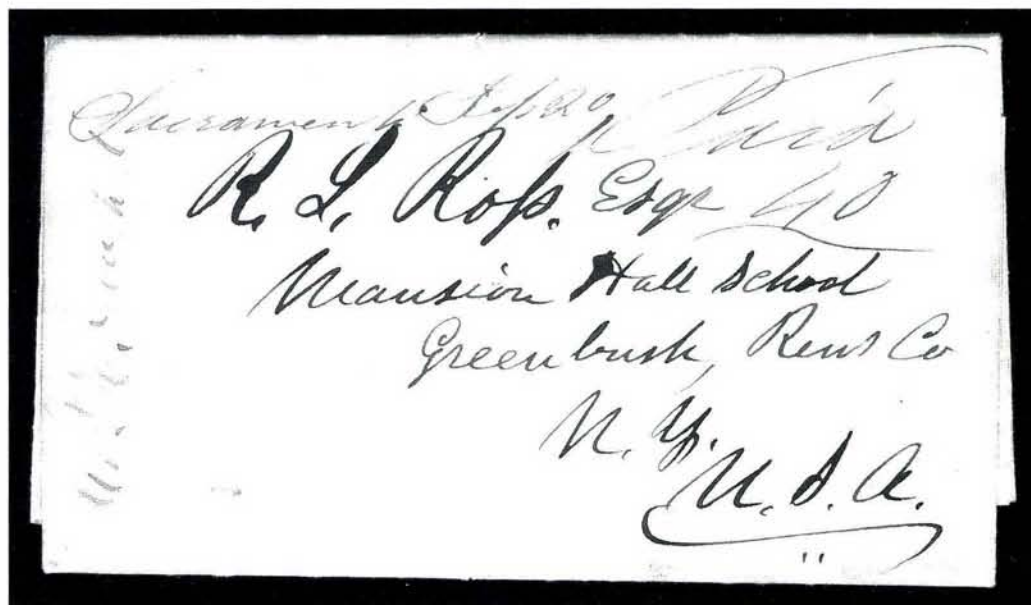 Sacramento Sep 20 Paid
R. L. Ross. Esqr 40
Mansion Hall School
Greenbush, Rens Co
N. Y.
U. S. A.